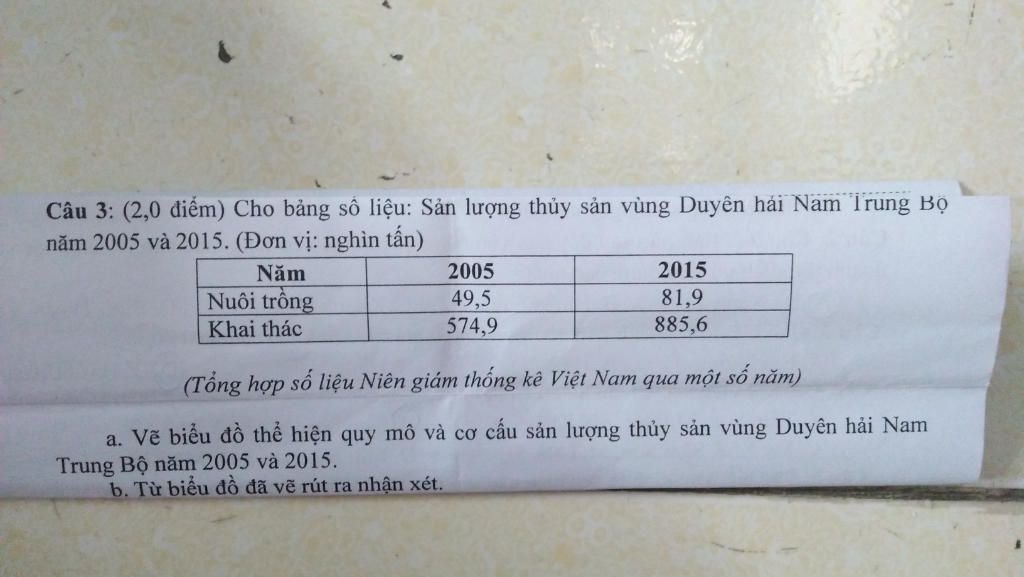 Câu 3: (2,0 điểm) Cho bảng số liệu: Sản lượng thủy sản vùng Duyên hải Nam Trung Bộ
năm 2005 và 2015. (Đơn vị: nghìn tấn)
Năm 2005 2015
Nuôi trồng 49,5 81,9
Khai thác 574,9 885,6
(Tổng hợp số liệu Niên giám thống kê Việt Nam qua một số năm)
a. Vẽ biểu đồ thể hiện quy mô và cơ cấu sản lượng thủy sản vùng Duyên hải Nam
Trung Bộ năm 2005 và 2015.
b. Từ biểu đồ đã vẽ rút ra nhận xét.